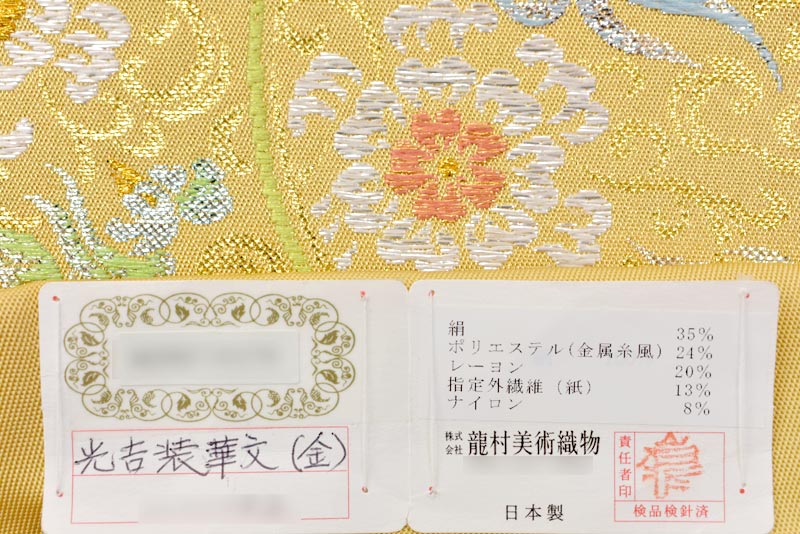 光吉装華文(金)
絹 35%
ポリエステル(金属糸風) 24%
レーヨン 20%
指定外繊維(紙) 13%
ナイロン 8%
株式会社 龍村美術織物
日本製
責任者印
検品検針済